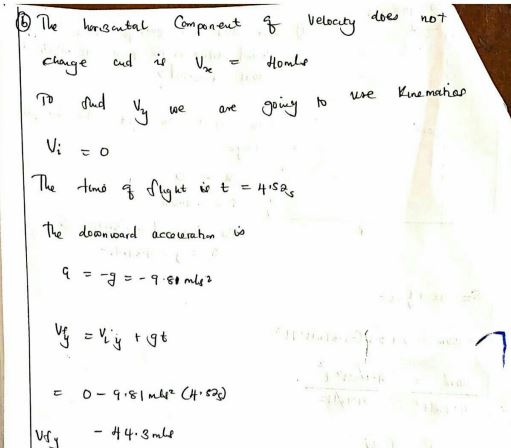 (b) The horizontal Component of Velocity does not
change and is Vx = 40m/s
To find Vy we are going to use Kinematics
Vi = 0
The time of flight is t = 4.52s
the downward acceleration is
a = -g = -9.81 m/s²
Vfy = Viy + gt
= 0 - 9.81 m/s² (4.52s)
Vfy - 44.3 m/s